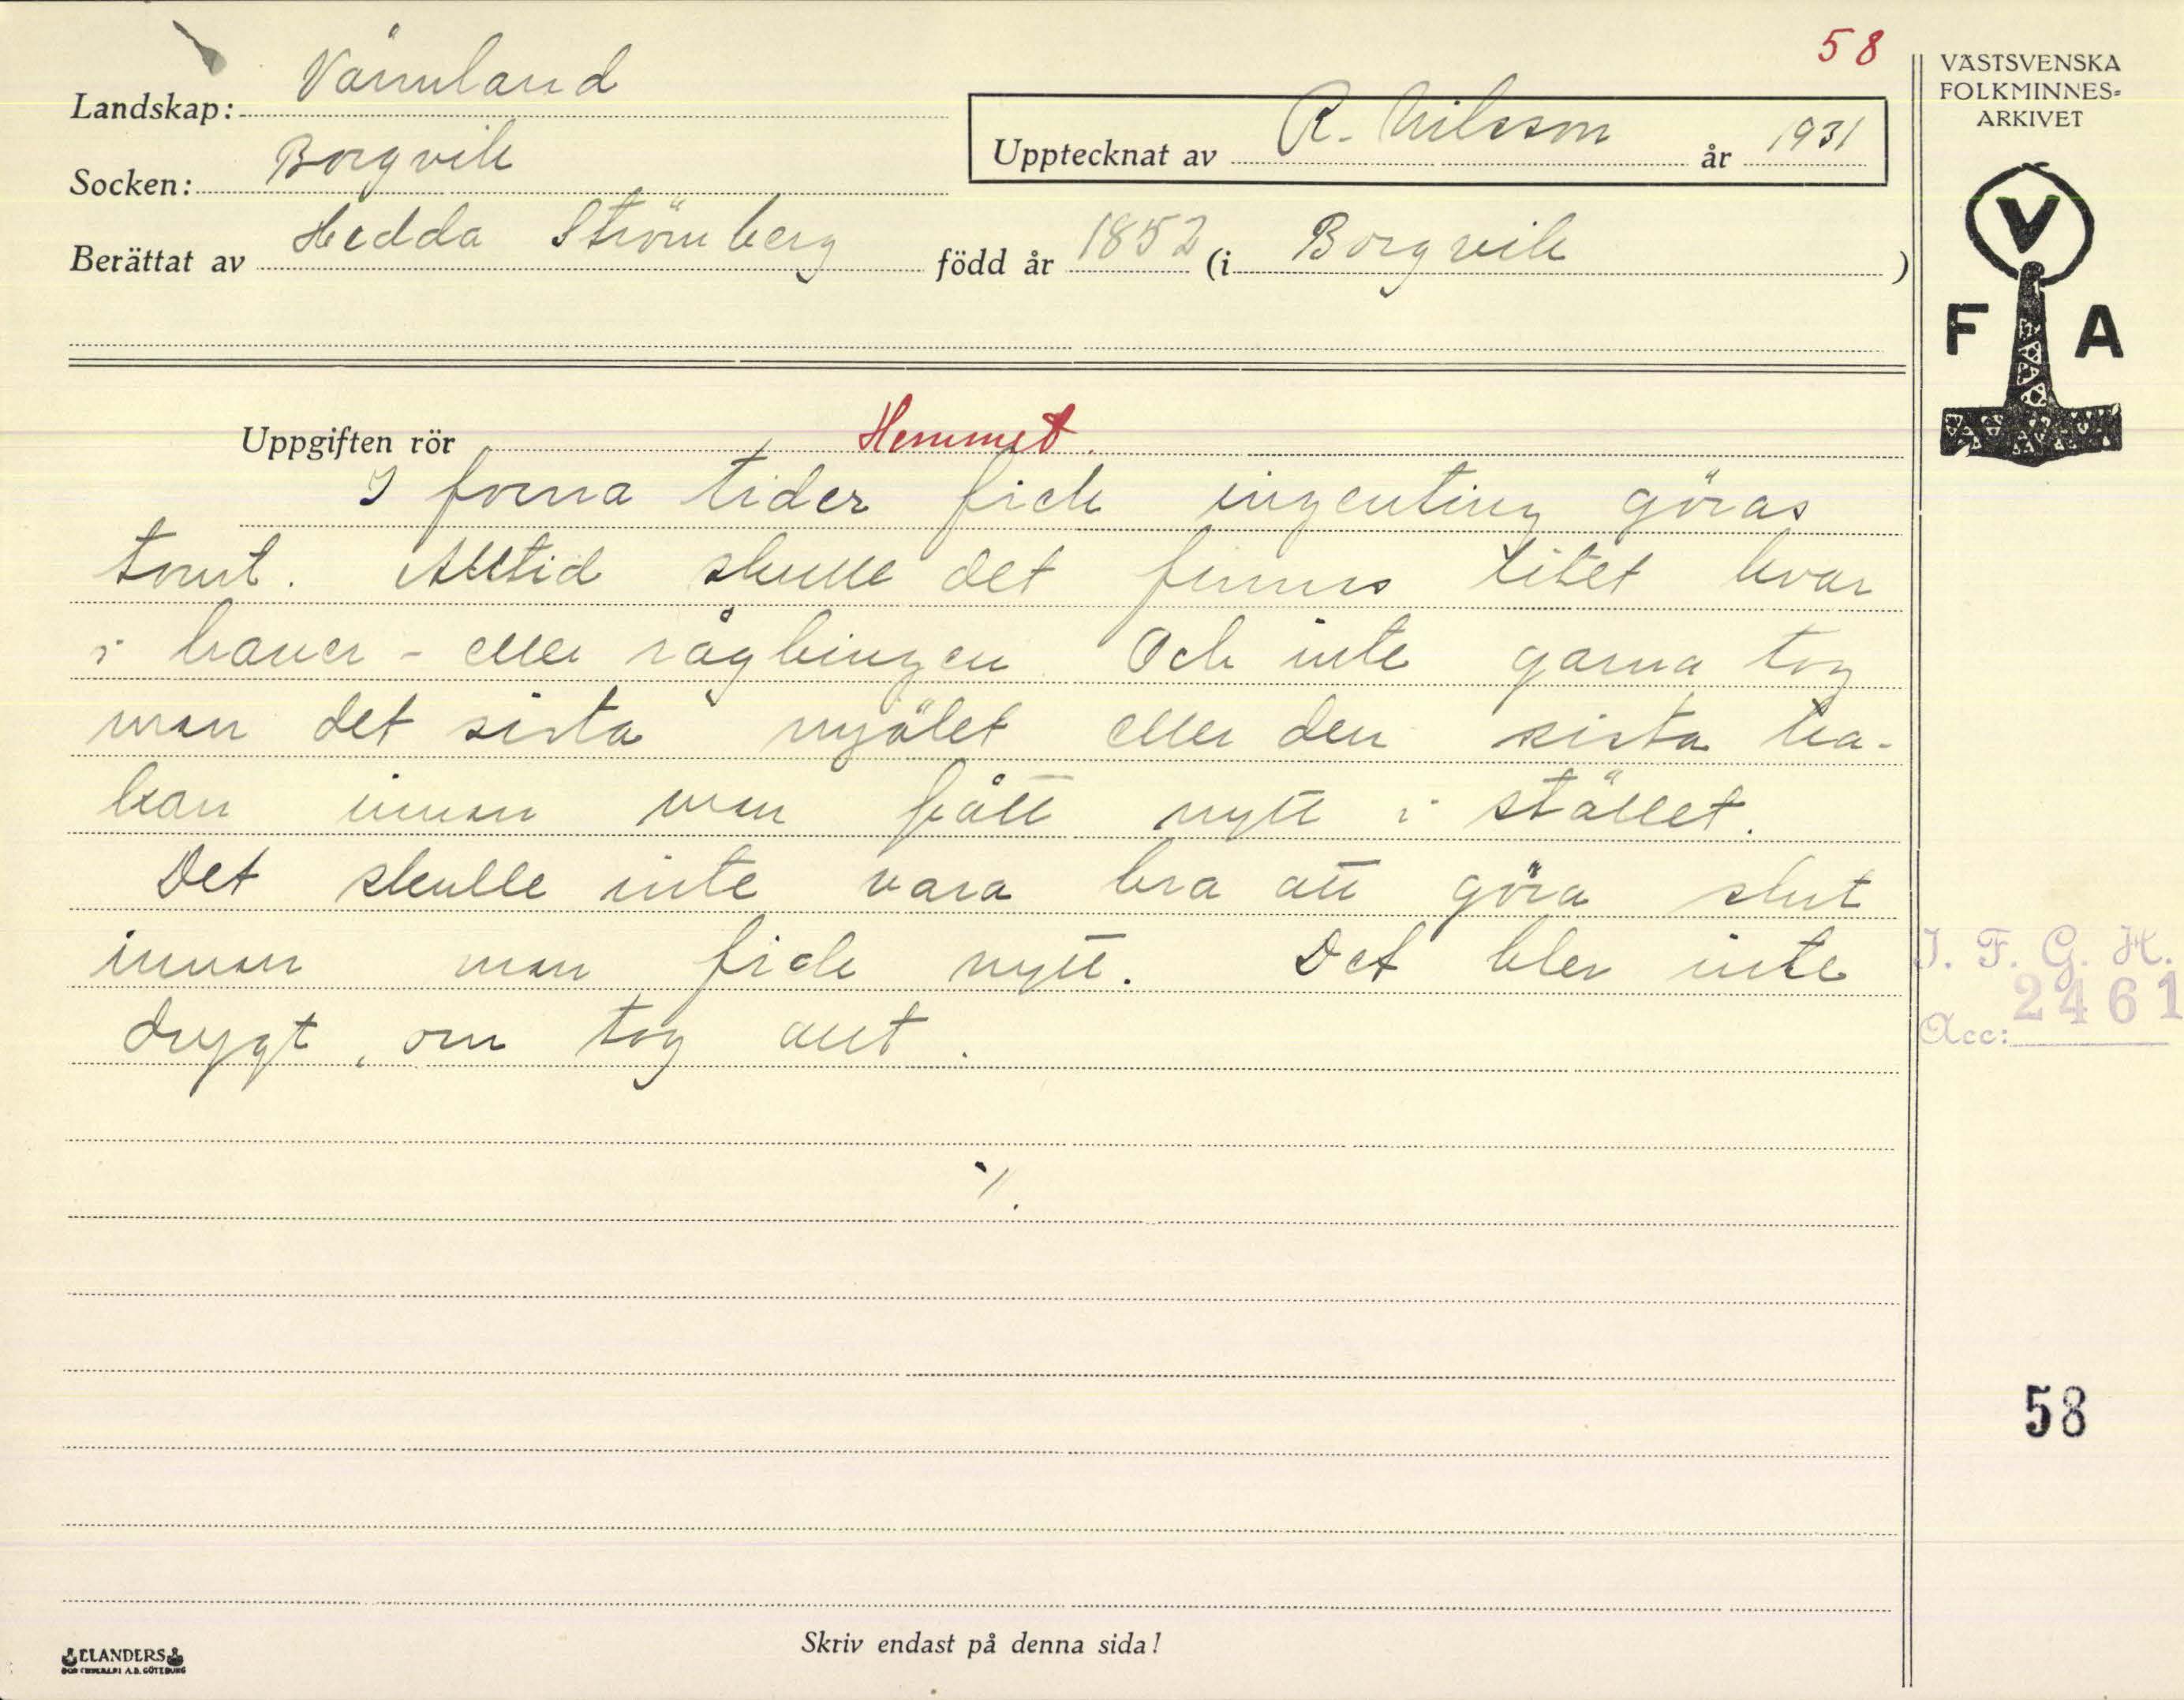 58
Landskap: Värmland
Socken: Borgvik
Upptecknat av R. Nilsson år 1931
Berättat av Hedda Strömberg född år 1852 (i Borgvik )
VÄSTSVENSKA
FOLKMINNES-
ARKIVET
V
F A
Uppgiften rör Hemmet.
I forna tider fick ingenting göras
tomt. Alltid skulle det finnas litet kvar
i haver- eller rågbingen. Och inte gärna tog
man det sista mjölet eller den sista ka-
kan innan man fått nytt i stället.
Det skulle inte vara bra att göra slut
innan man fick nytt. Det blev inte
drygt, om tog allt.
I. F. G. H.
2461
Acc:
58
ELANDERS
Skriv endast på denna sida!